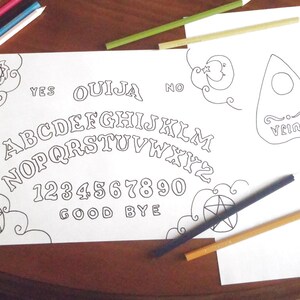 YES OUIJA NO
ABCDEFGHIJKLM
NOPQRSTUVWXYZ
1234567890
GOOD BYE